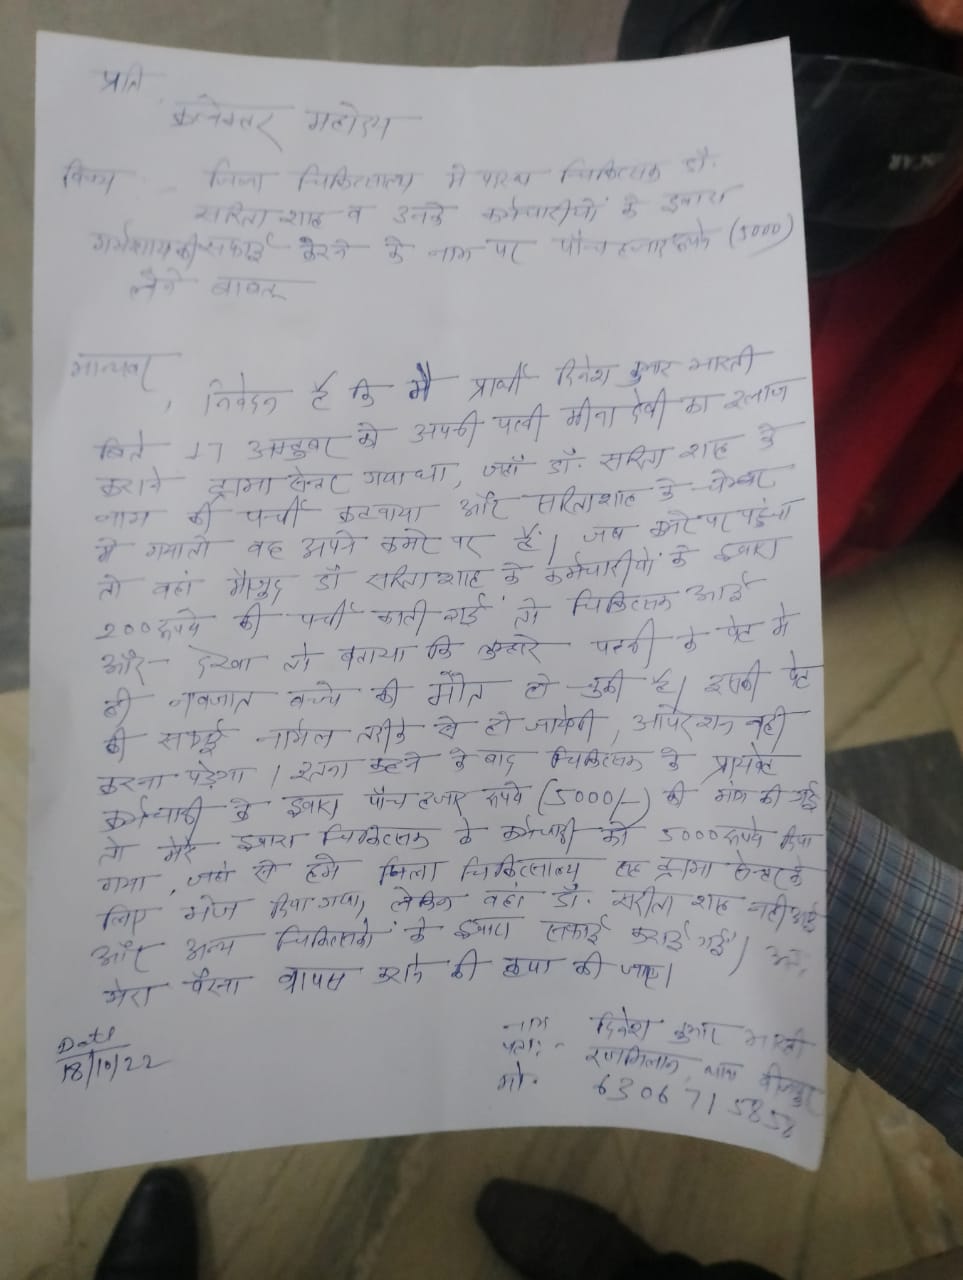 प्रति
कलेक्टर महोदय
विषय - जिला चिकित्सालय मे पदस्थ चिकित्सक डॉ.
सरिता शाह व उनके कर्मचारीयों के द्वारा
गर्भशाय की सफाई करने के नाम पर पाँच हजार रूपये (5000)
लेने बावत
मान्यवर
, निवेदन है कि मै प्रार्थी दिनेश कुमार भारती
बिते 17 अक्टुबर को अपनी पत्नी मीना देवी का इलाज
कराने ट्रामा सेन्टर गया था, जहाँ डॉ. सरिता शाह के
नाम की पर्ची कटवाया और सरिता शाह के चेम्बर
मे गया तो वह अपने कमरे पर है। जब कमरे पर पहुंचा
तो वहां मौजुद डॉ सरिता शाह के कर्मचारीयों के द्वारा
200 रूपये की पर्ची काटी गई तो चिकित्सक आई
और देखा तो बताया कि तुम्हारे पत्नी के पेट मे
ही नवजात बच्चे की मौत हो चुकी है। इसकी पेट
की सफाई नार्मल तरीके से हो जायेगी, आपरेशन नही
करना पड़ेगा। इतना कहने के बाद चिकित्सक के प्रायवेट
कर्मचारी के द्वारा पाँच हजार रूपये (5000/-) की मांग की गई
तो मेरे द्वारा चिकित्सक के कर्मचारी को 5000 रूपये दिया
गया, जहां से हमे जिला चिकित्सालय सह ट्रामा सेन्टर के
लिए भेज दिया गया, लेकिन वहां डॉ. सरीता शाह नही आई
और अन्य चिकित्सकों के द्वारा सफाई कराई गई। अतः
मेरा पैसा वापस कराने की कृपा की जाए।
Date
18/10/22
नाम दिनेश कुमार भारती
पता:-
मो. 6306715858